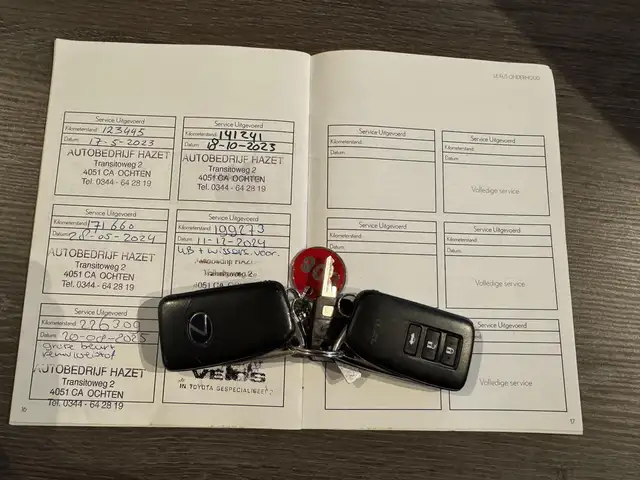 LEXUS ONDERHOUD
Service Uitgevoerd
Kilometerstand: 123445
Datum: 17-5-2023
AUTOBEDRIJF HAZET
Transitoweg 2
4051 CA OCHTEN
Tel. 0344 - 64 28 19
Service Uitgevoerd
Kilometerstand: 141241
Datum: 18-10-2023
AUTOBEDRIJF HAZET
Transitoweg 2
4051 CA OCHTEN
Tel. 0344 - 64 28 19
Service Uitgevoerd
Kilometerstand: 171660
Datum: 28-05-2024
AUTOBEDRIJF HAZET
Transitoweg 2
4051 CA OCHTEN
Tel. 0344 - 64 28 19
Service Uitgevoerd
Kilometerstand: 199273
Datum: 11-12-2024
Service Uitgevoerd
Kilometerstand: 226300
Datum: 20-08-2025
grote beurt
remvloeistof
AUTOBEDRIJF HAZET
Transitoweg 2
4051 CA OCHTEN
Tel. 0344 - 64 28 19
IN TOYOTA GESPECIALISEERD
16
Service Uitgevoerd
Kilometerstand:
Datum:
Service Uitgevoerd
Kilometerstand:
Datum:
Volledige service
Service Uitgevoerd
Kilometerstand:
Datum:
Service Uitgevoerd
Kilometerstand:
Datum:
Volledige service
Service Uitgevoerd
Volledige service
17